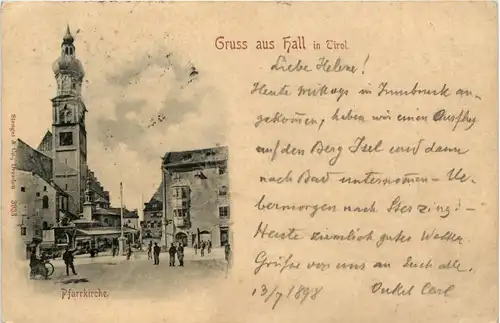 Gruss aus Hall in Tirol.
Liebe Helene!
Heute Mittags in Innsbruck an-
gekommen, haben wir einen Ausflug
auf den Berg Isel und dann
nach Hall unternommen – Ue-
bermorgen nach Sterzing! –
Heute ziemlich gutes Wetter.
Grüße von uns an Euch alle.
13/7 1898 Onkel Carl
Stengel & Co., Dresden 3031
Pfarrkirche.